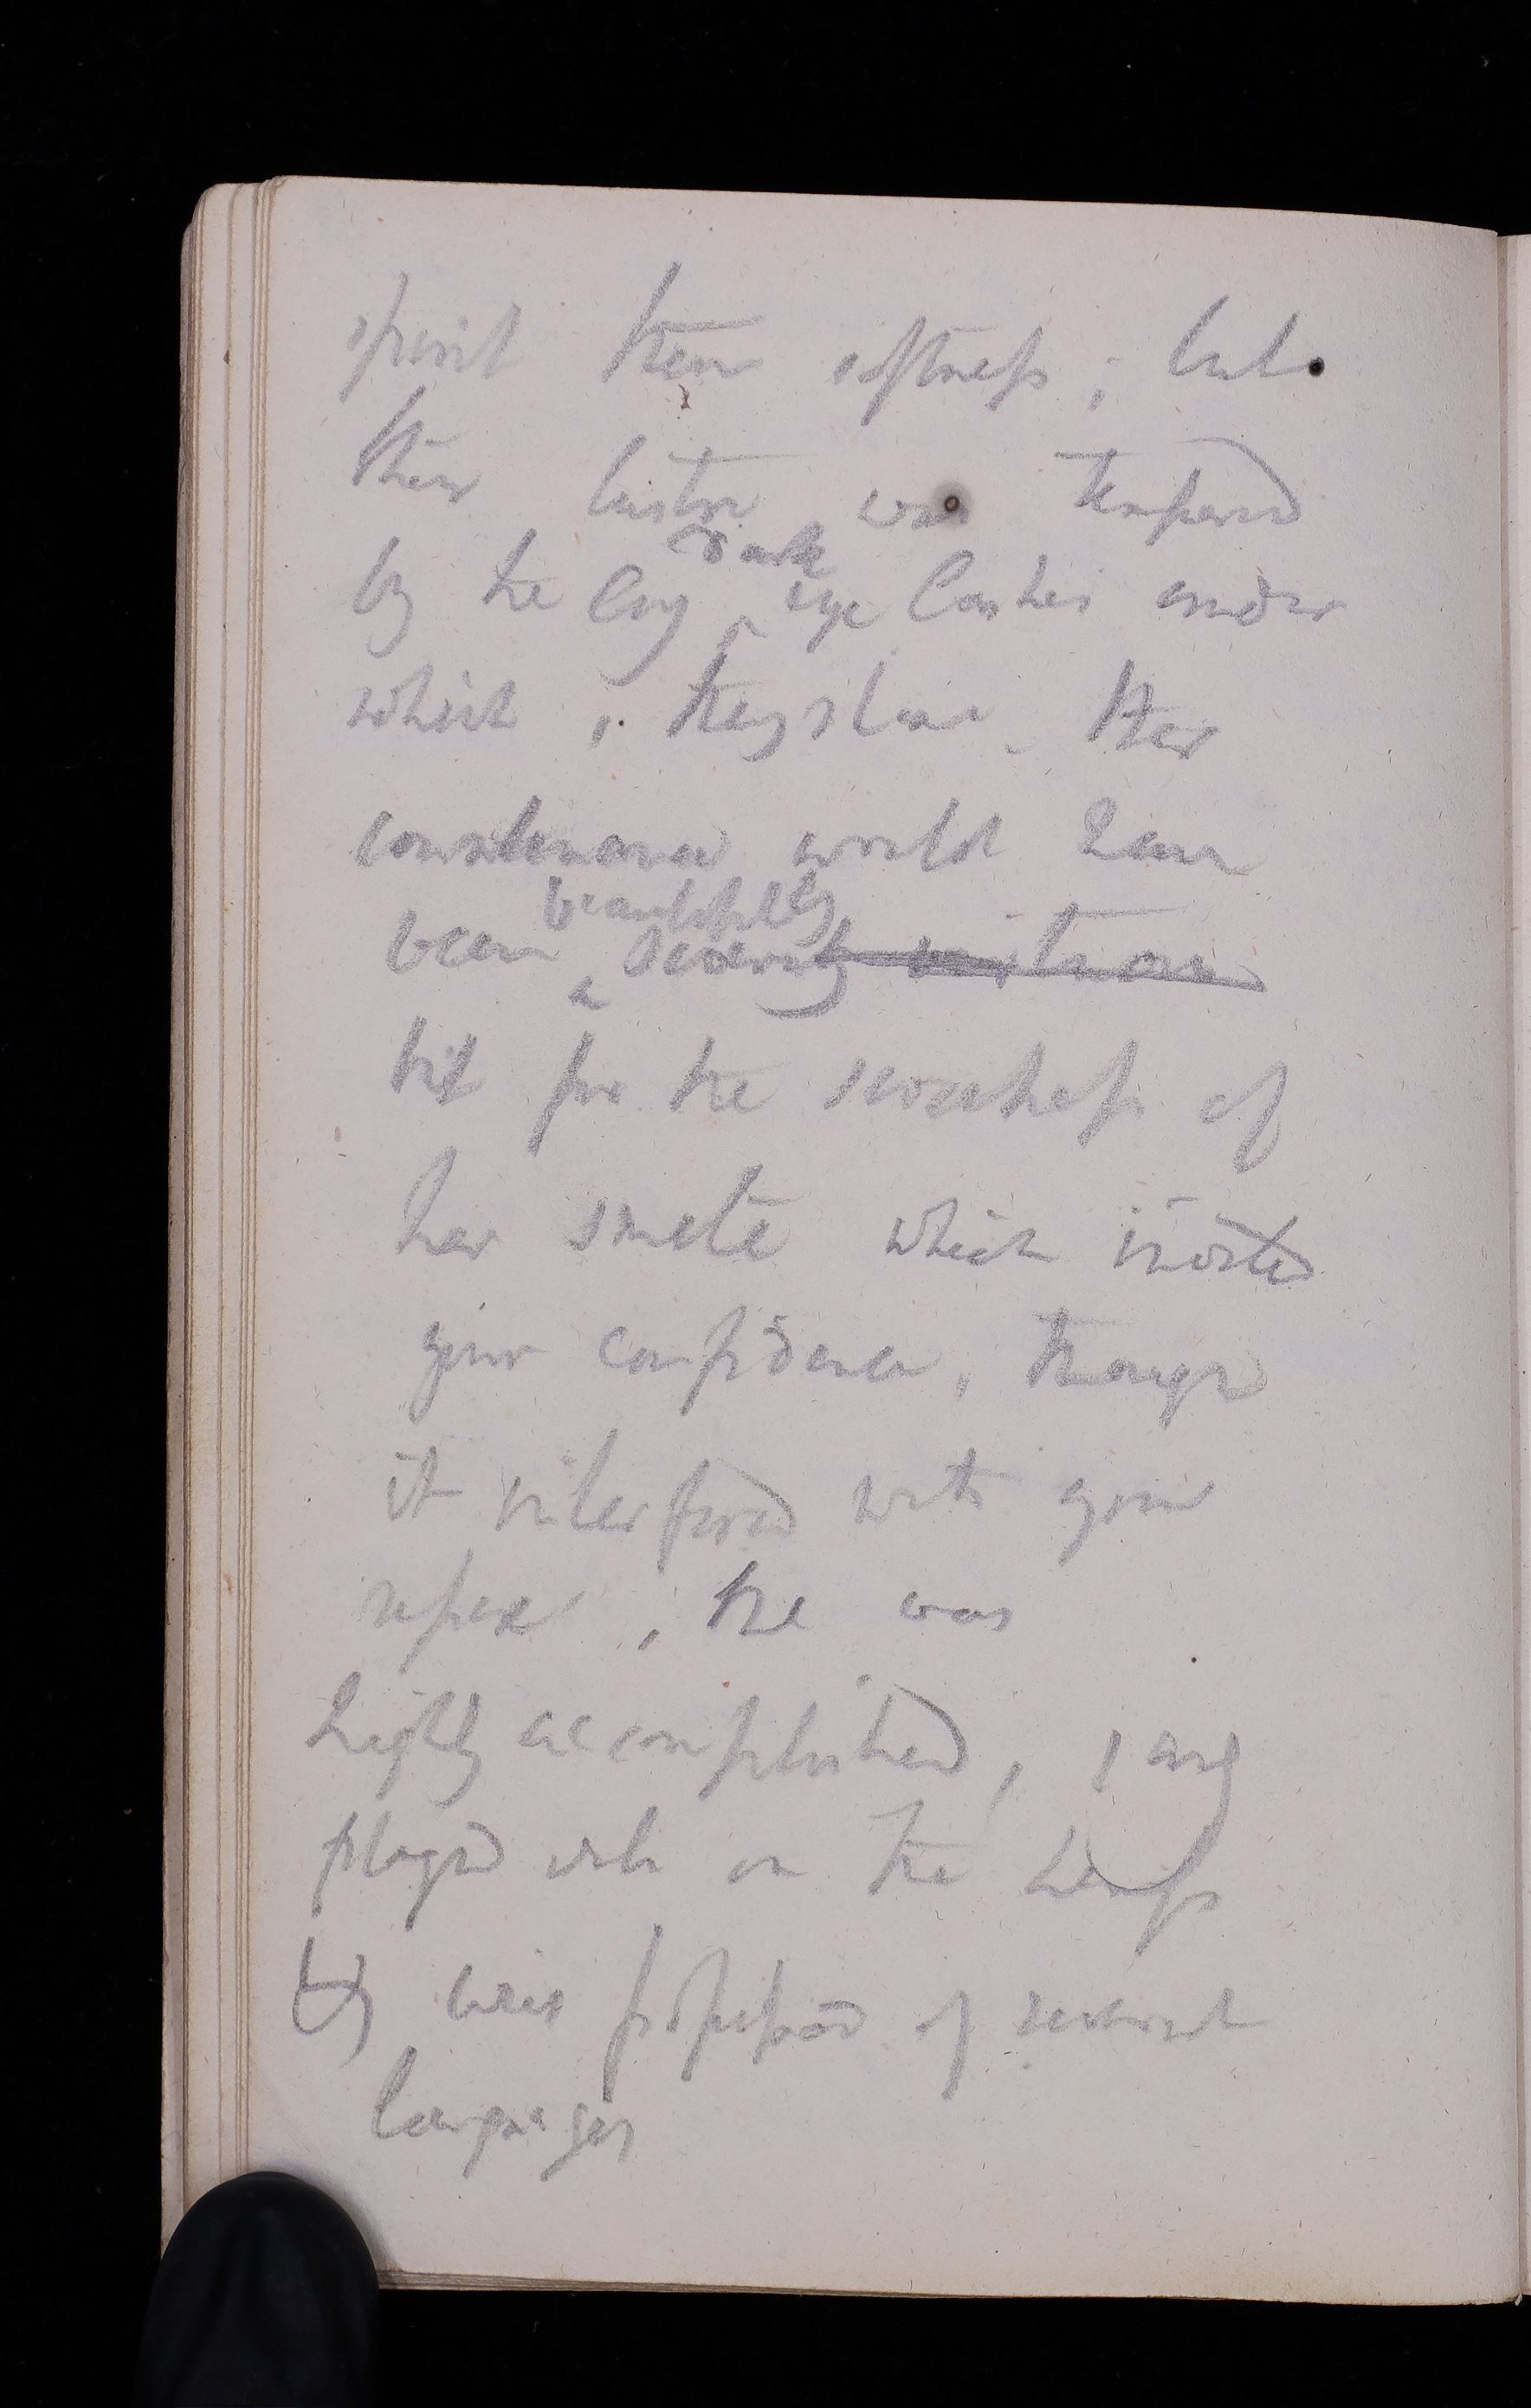 spirit then softness; but
their lustre was tempered
by the long ^ dark eye lashes under
which, they shone. Her
countenance would have
been ^ beautifully
but for the sweetness of
her smile which invited
your confidence, though
it interfered with your
repose, she was
highly accomplished, sang
played well on the Harp
& was possessed of several
languages